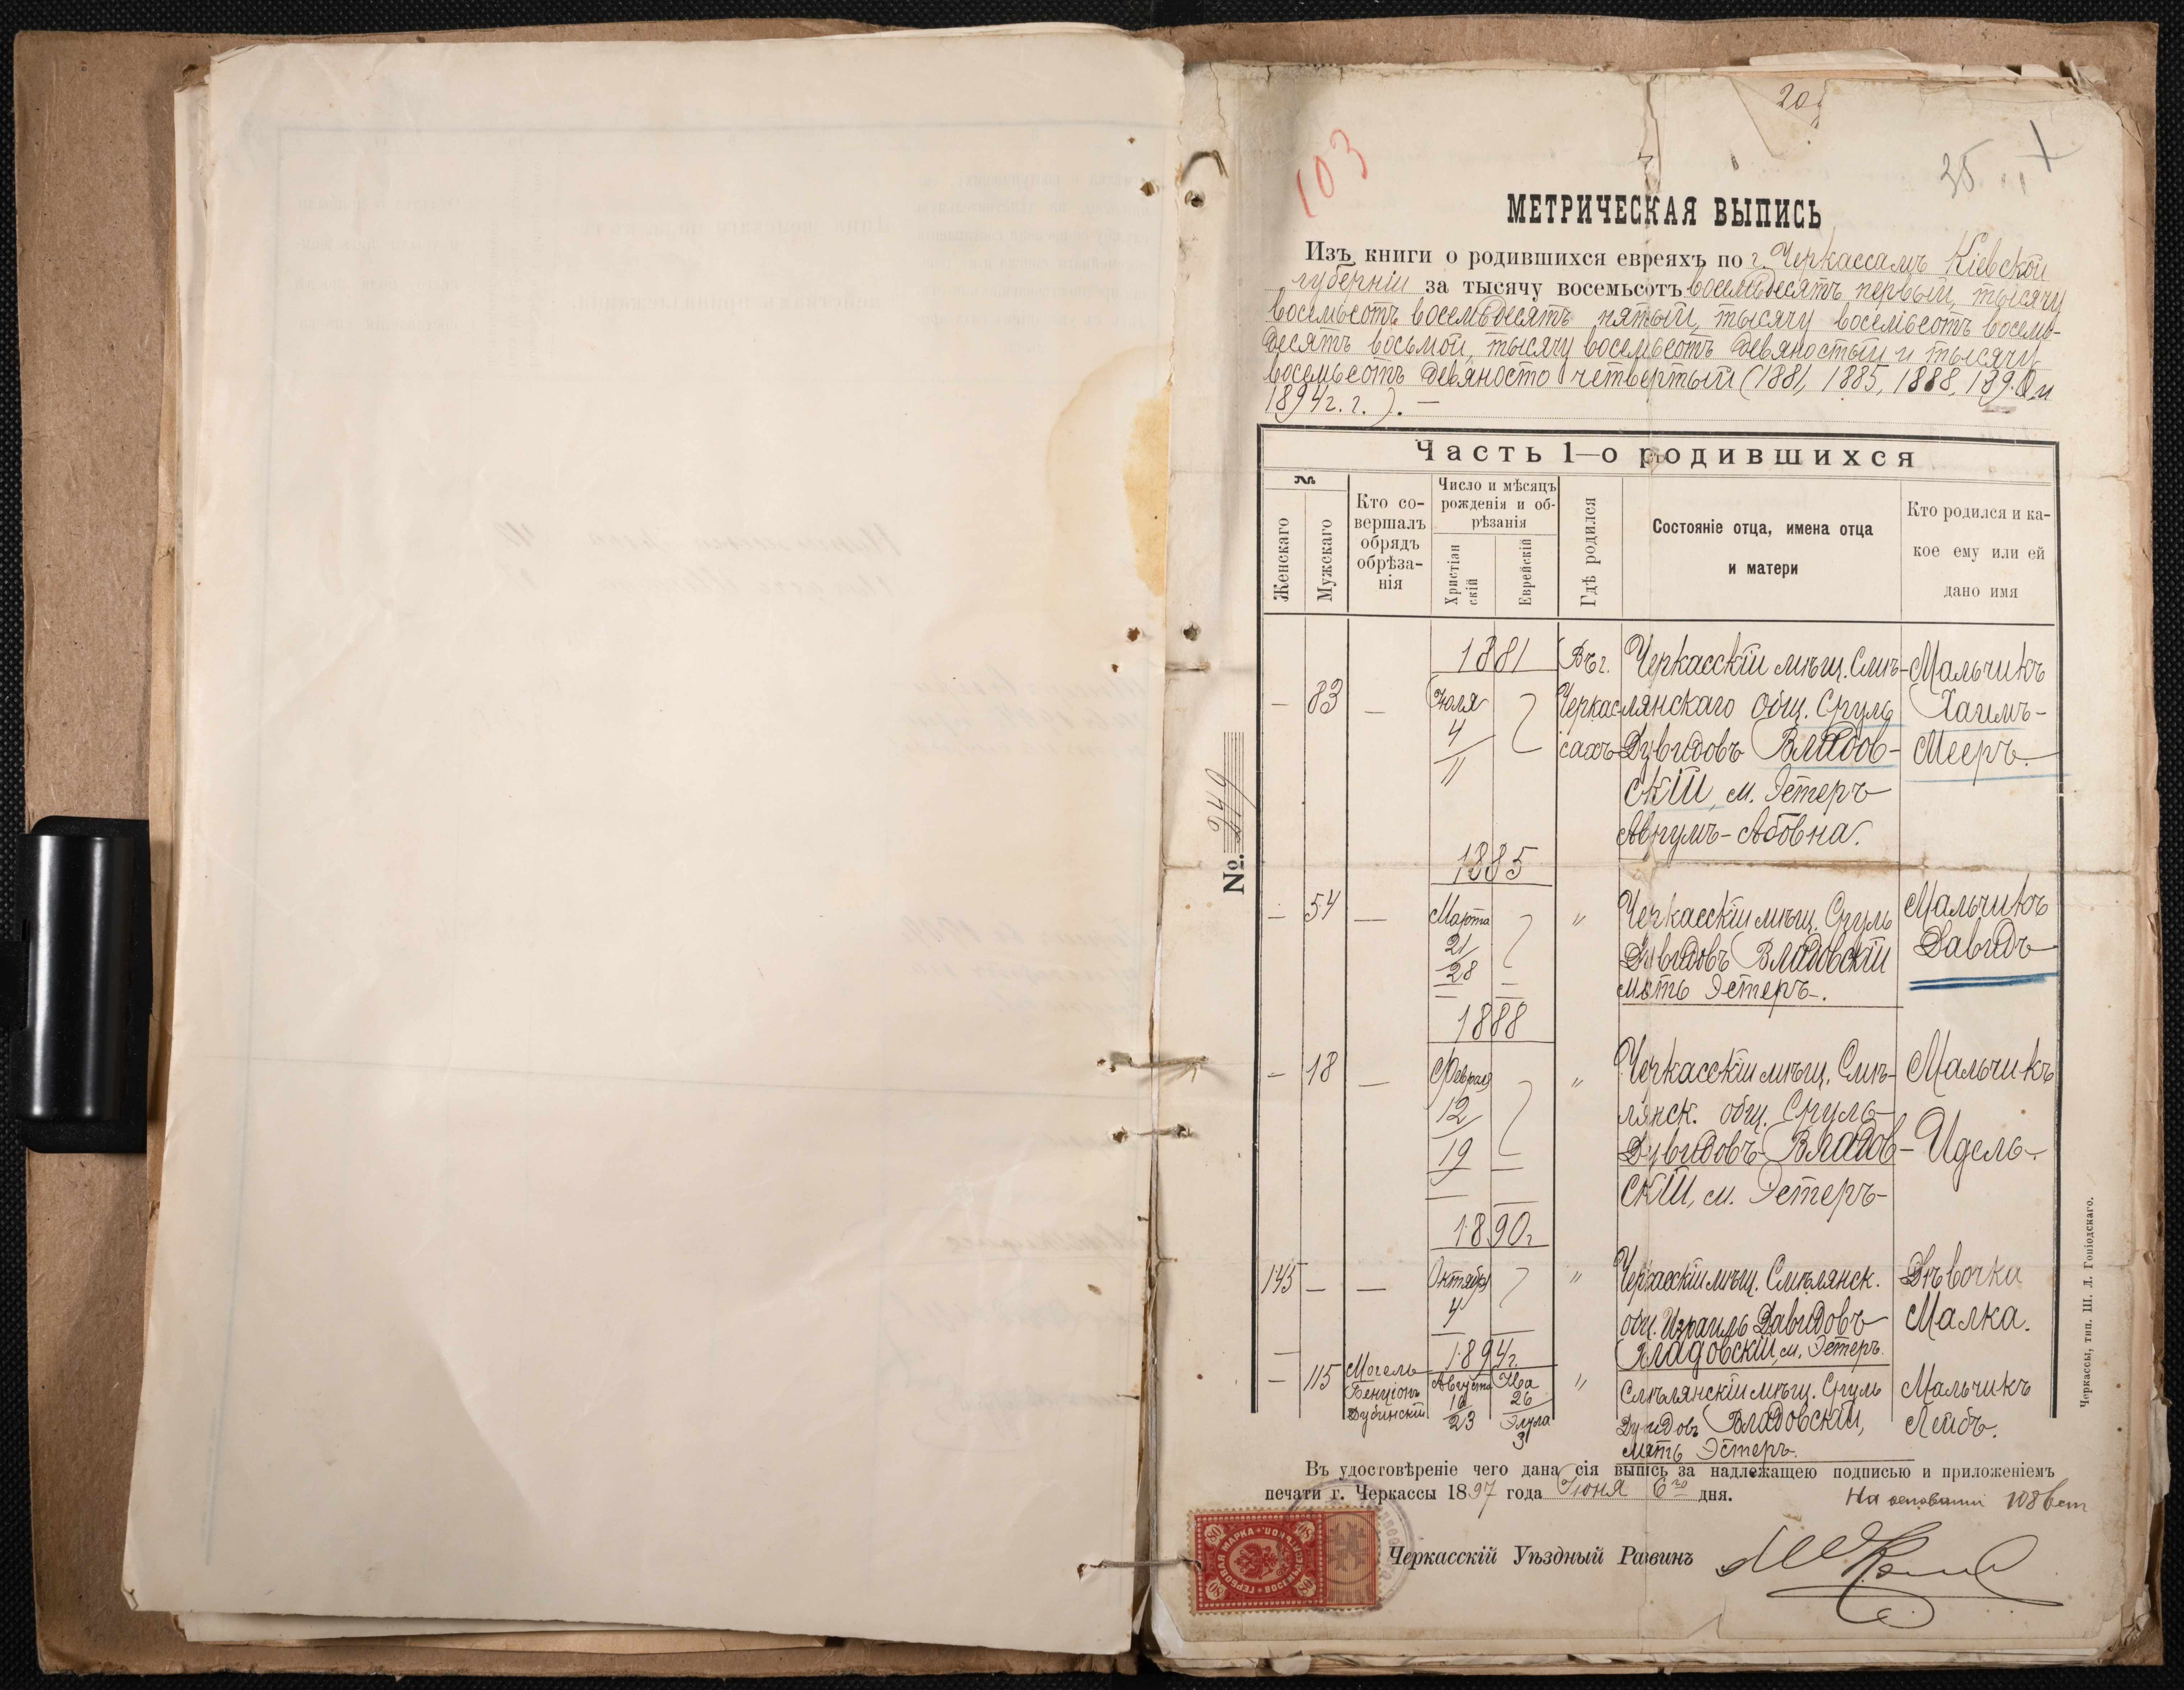 20
103
25
МЕТРИЧЕСКАЯ ВЫПИСЬ
Изъ книги о родившихся евреяхъ по г. Черкассамъ Кіевской
губерніи за тысячу восемьсотъ восемьдесятъ первый, тысячу
восемьсотъ восемьдесятъ пятый, тысячу восемьсотъ восемь-
десятъ восьмой, тысячу восемьсотъ девяностый и тысячу
восемьсотъ девяносто четвертый (1881, 1885, 1888, 1890 и
1894 г. г.). —
Часть 1—о родившихся
№
Женскаго
Мужскаго
Кто со-
вершалъ
обрядъ
обрѣза-
нія
Число и мѣсяцъ
рожденія и об-
рѣзанія
Христіан
скій
Еврейскій
Гдѣ родился
Состояніе отца, имена отца
и матери
Кто родился и ка-
кое ему или ей
дано имя
1881
— 83 — Іюля 4/11 Въ г. Черкас сахъ
Черкасскій мѣщ. Смѣ-
лянскаго общ. Сруль
Дувидовъ Владов-
скій, м. Эстеръ
Аврумъ-Абовна.
Мальчикъ
Хаимъ-
Мееръ.
1885
— 54 — Марта 21/28 "
Черкасскій мѣщ. Сруль
Дувидовъ Владовскій
мать Эстеръ.
Мальчикъ
Давидъ
1888
— 18 — Февраля 12/19 "
Черкасскій мѣщ. Смѣ-
лянск. общ. Сруль
Дувидовъ Владов-
скій, м. Эстеръ
Мальчикъ
Идель.
1890 г.
145 — — Октября 4 "
Черкасскій мѣщ. Смѣлянск.
общ. Израиль Давидовъ
Владовскій, м. Эстеръ.
Дѣвочка
Малка.
1894 г.
— 115
Могель
Бенціонъ
Дубинскій
Августа 16/23
Ава 26
Элула 3
"
Смѣлянскій мѣщ. Сруль
Дувидовъ Владовскій,
мать Эстеръ.
Мальчикъ
Лейбъ.
Въ удостовѣреніе чего дана сія выпись за надлежащею подписью и приложеніемъ
печати г. Черкассы 1897 года Іюня 6го дня.
На основаніи 108 вст
Черкасскій Уѣздный Раввинъ
№. 249
ГЕРБОВАЯ МАРКА ВОСЕМДЕСЯТЪ КОП.
80
Черкассы, тип. Ш. Л. Гоніодскаго.